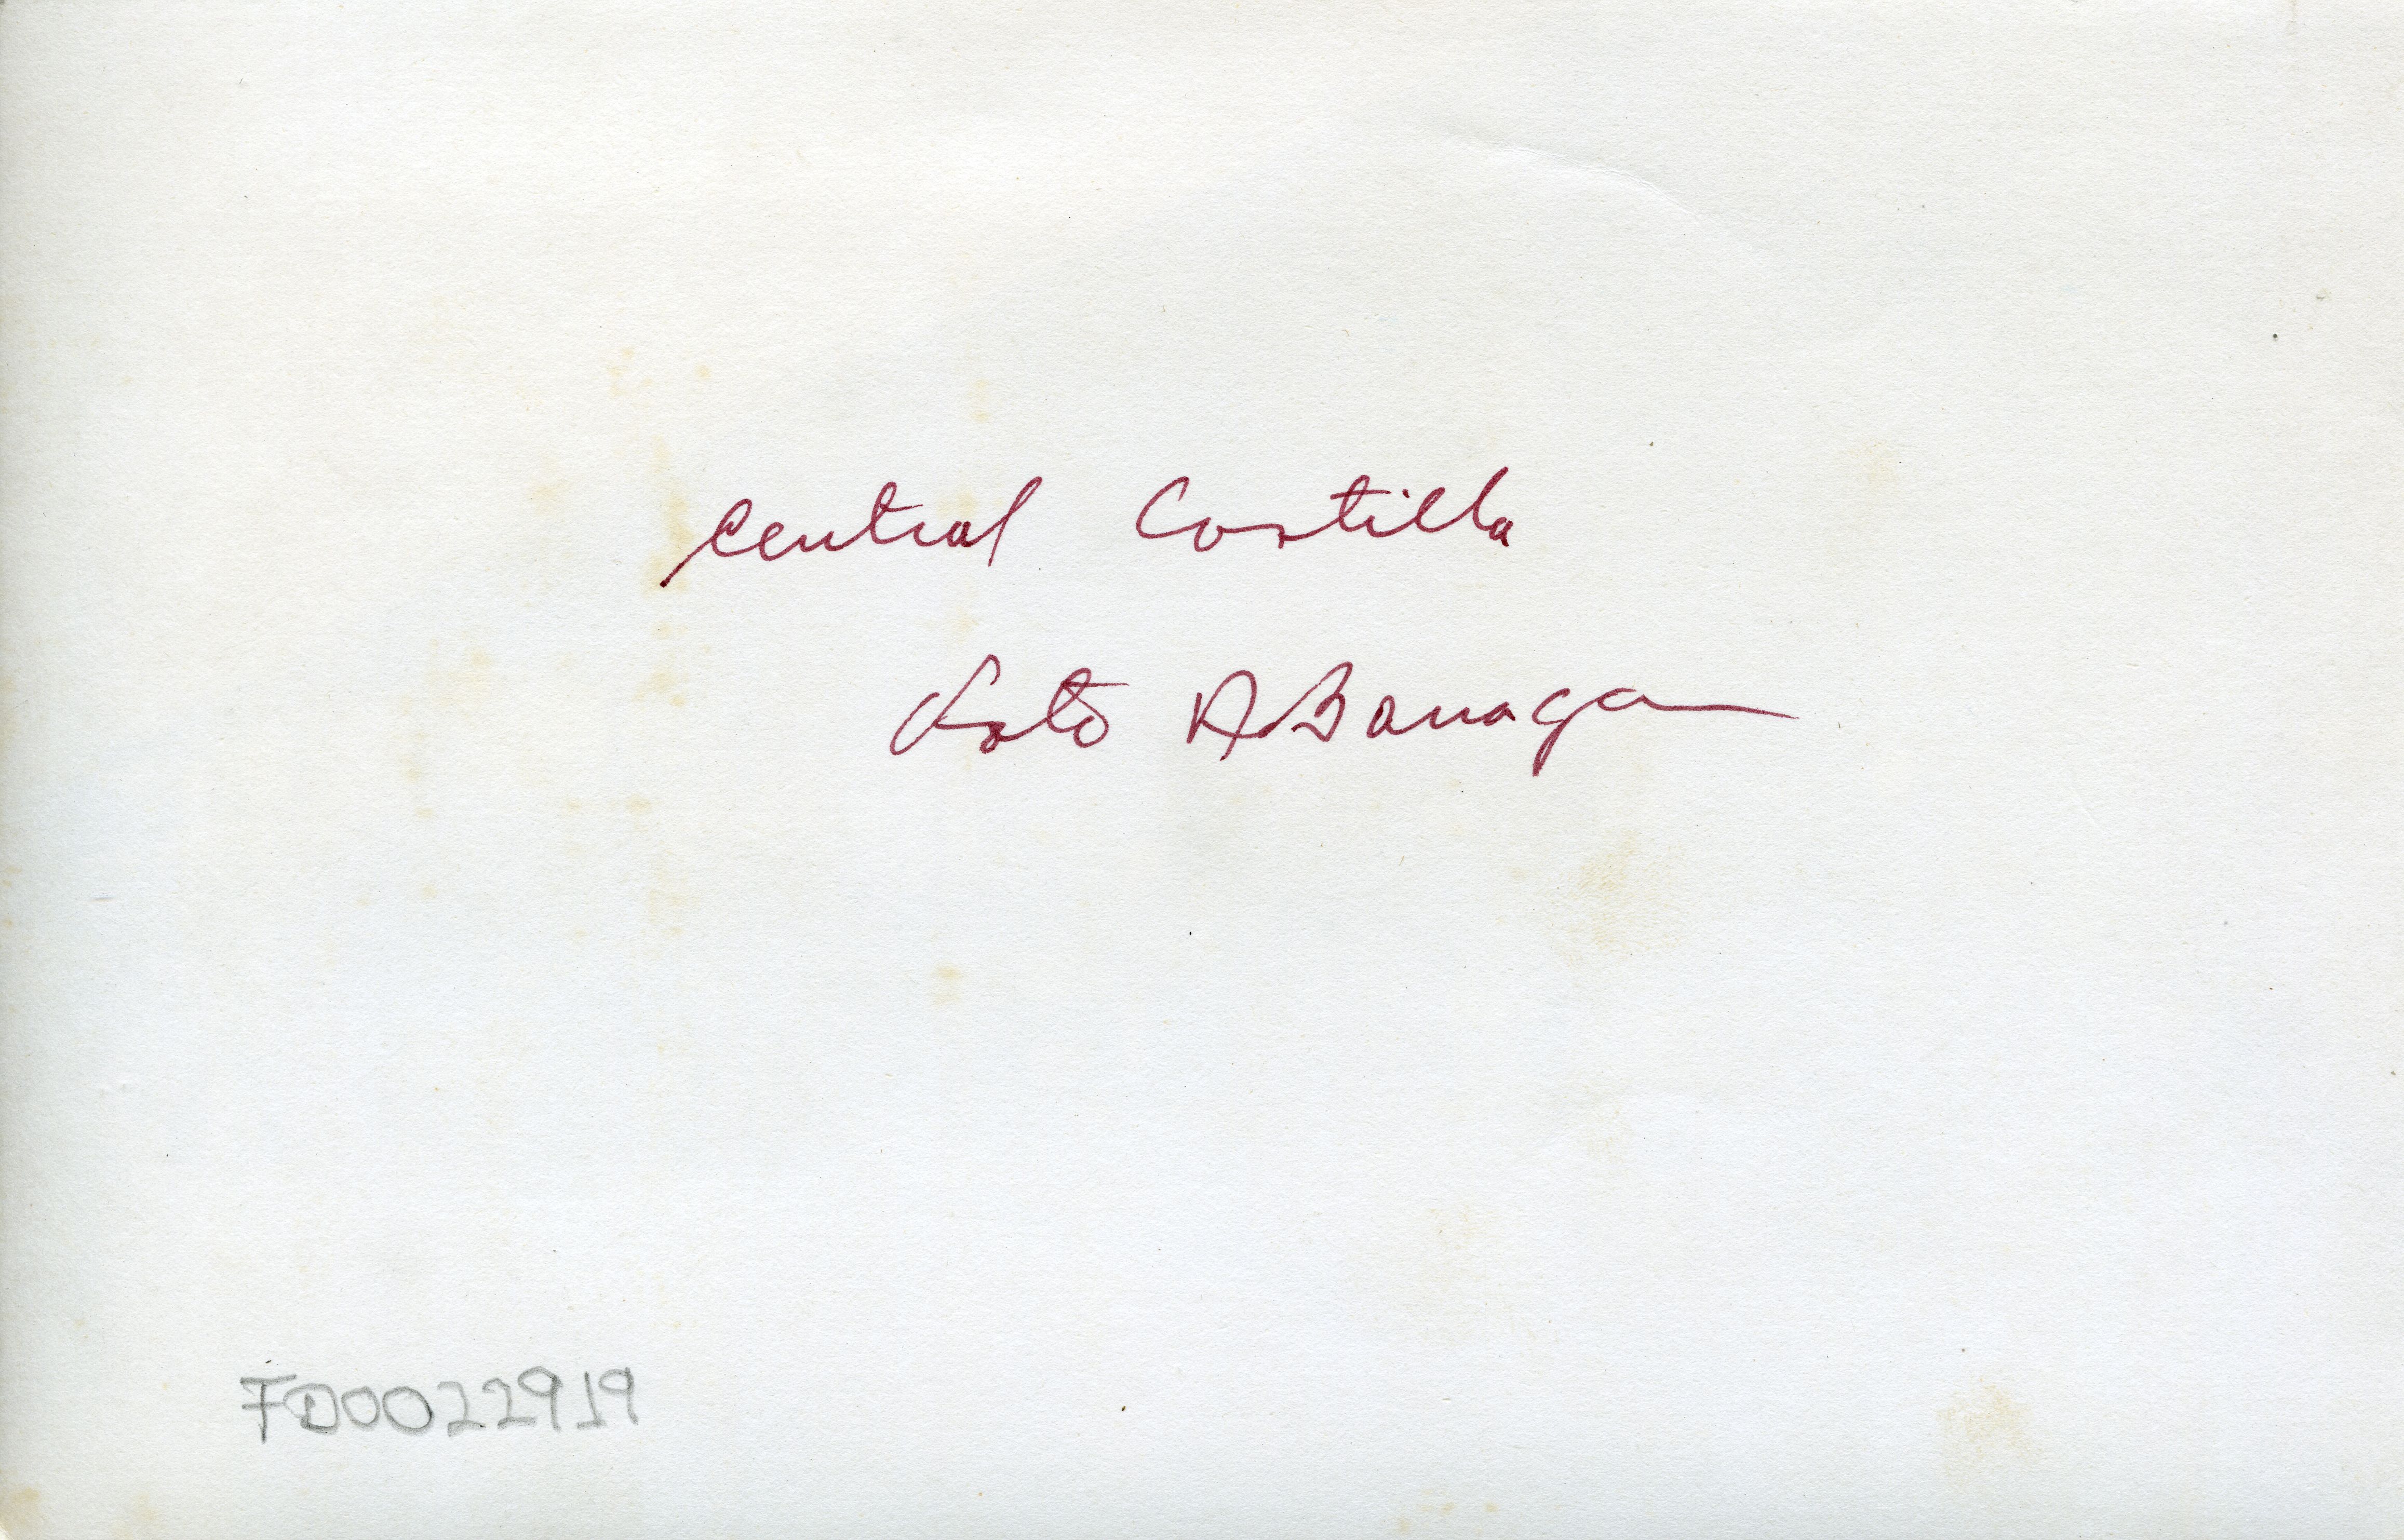 Central Castilla
Foto A Barragan
FD0022919